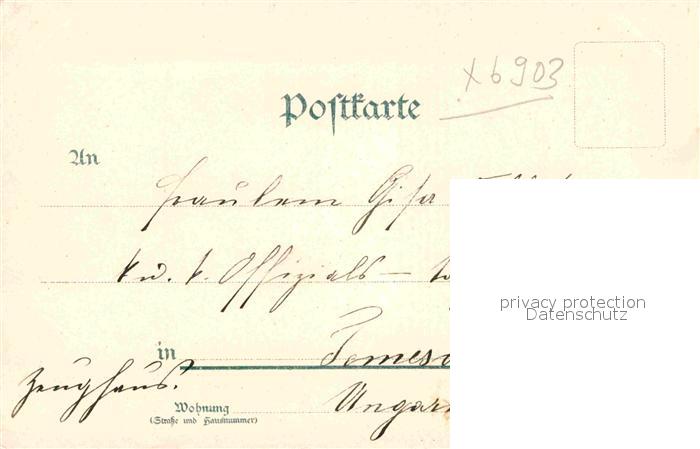 x6903
Postkarte
An
Fräulein Gisa
k. u. k. Offizials –
in
Zeughaus.
Wohnung Ungar
(Straße und Hausnummer)
privacy protection
Datenschutz